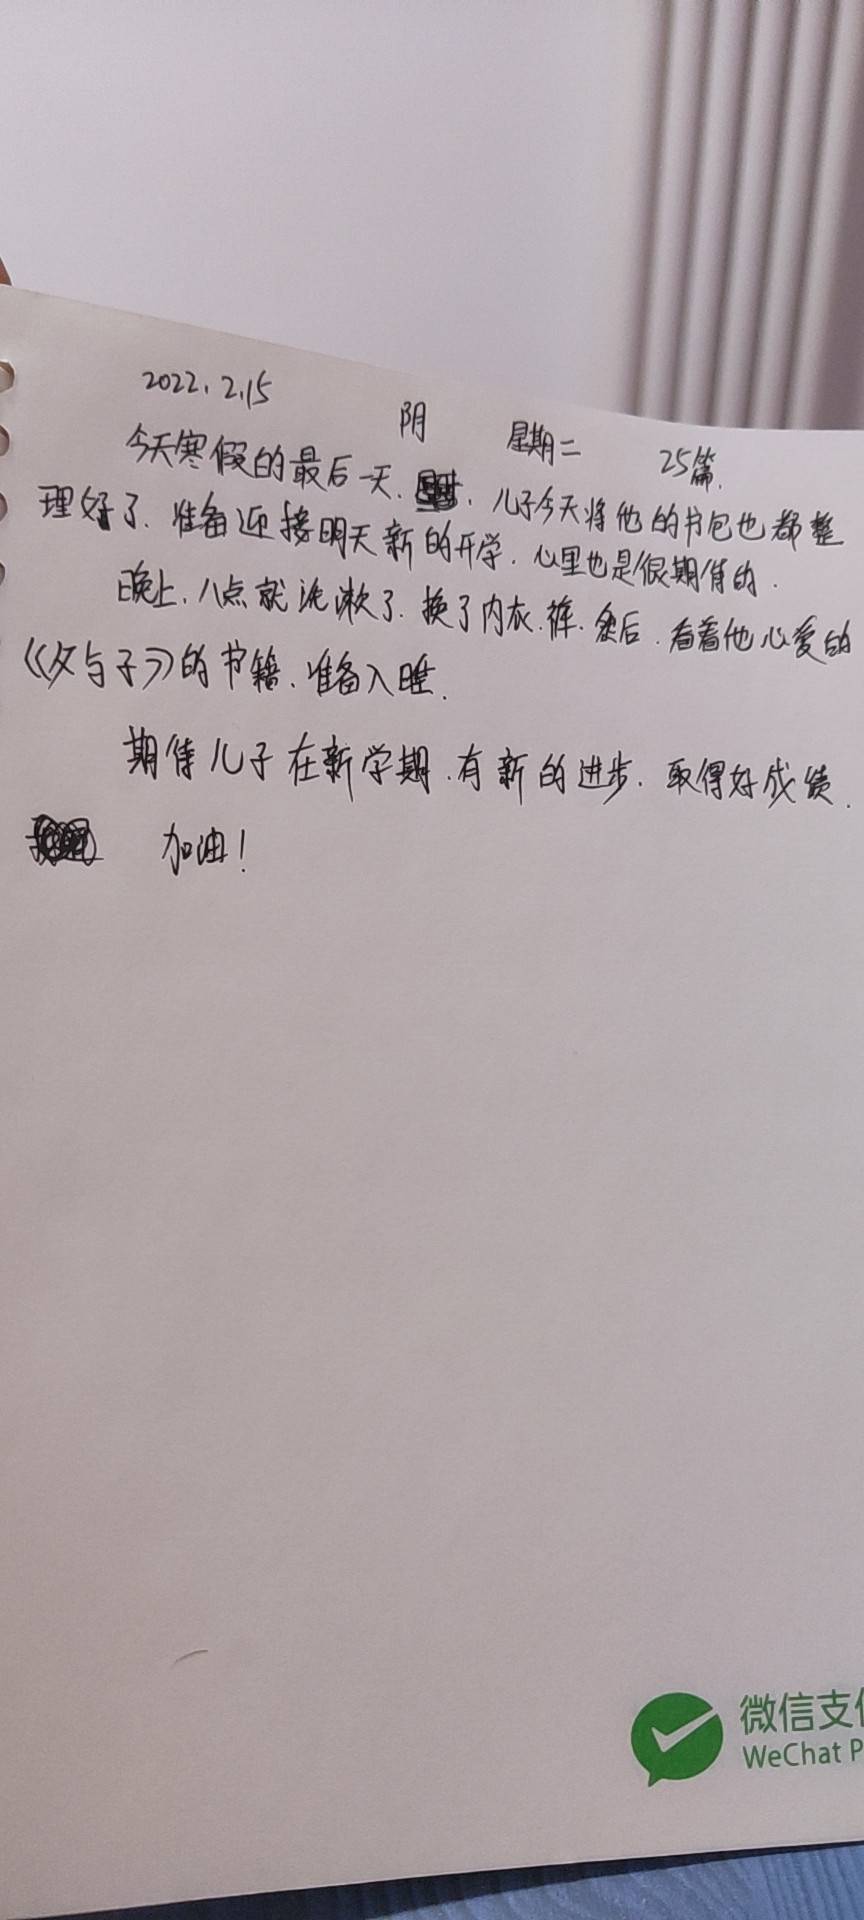 2022.2.15 阴 星期二 25篇.
今天寒假的最后一天. 儿子今天将他的书包也都整
理好了. 准备迎接明天新的开学. 心里也是很期待的.
晚上.八点就洗漱了.换了内衣.裤.然后.看着他心爱的
《父与子》的书籍.准备入睡.
期待儿子在新学期.有新的进步.取得好成绩.
加油!
微信支
WeChat P